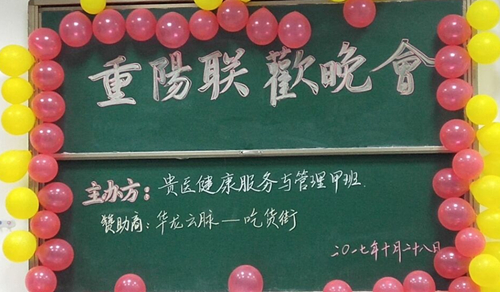 重陽联歡晚會
主办方：贵医健康服务与管理甲班
赞助商：华龙云脉——吃货街
二〇一七年十月二十八日